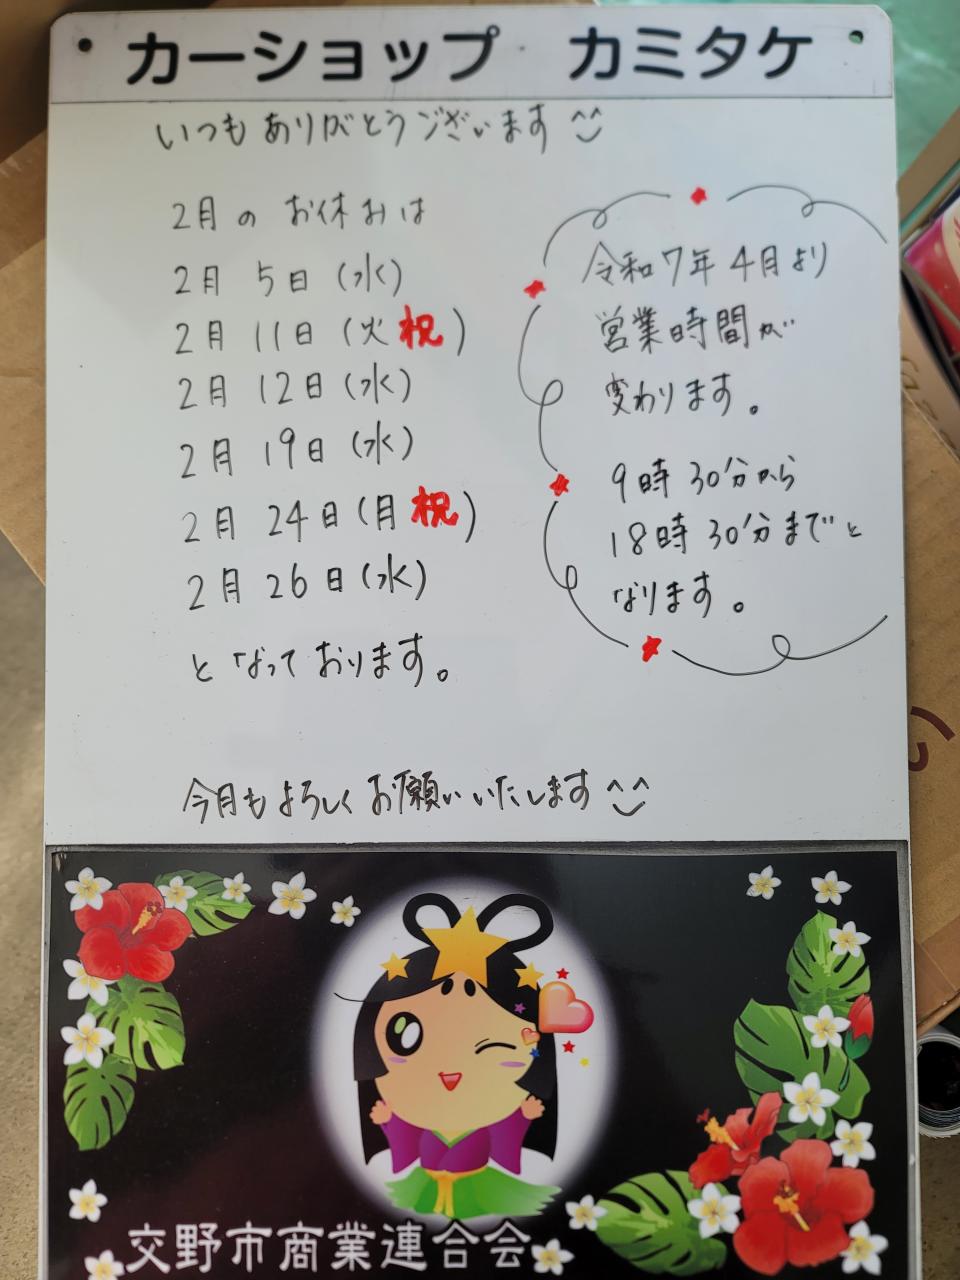 カーショップ カミタケ
いつも ありがとうございます ^^
2月 の お休みは
2月 5日 (水)
2月 11日 (火 祝)
2月 12日 (水)
2月 19日 (水)
2月 24日 (月 祝)
2月 26日 (水)
と なって おります。
令和7年 4月より
営業時間が
変わります。
9時 30分から
18時 30分までと
なります。
今月も よろしく お願い いたします ^^
交野市商業連合会